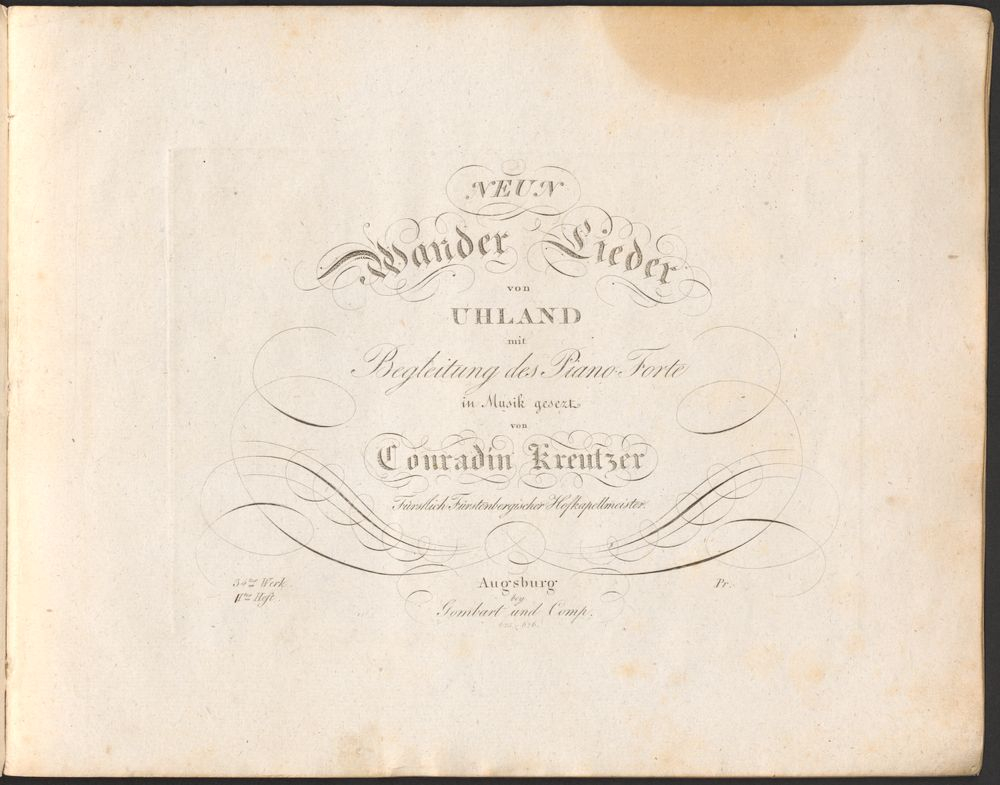 NEUN
Wander Lieder
von
UHLAND
mit
Begleitung des Piano-Forte
in Musik gesezt
von
Conradin Kreutzer
Fürstlich Fürstenbergischer Hofkapellmeister.
34tes Werk.
IItes Heft.
Augsburg
bey
Gombart und Comp.
Pr.